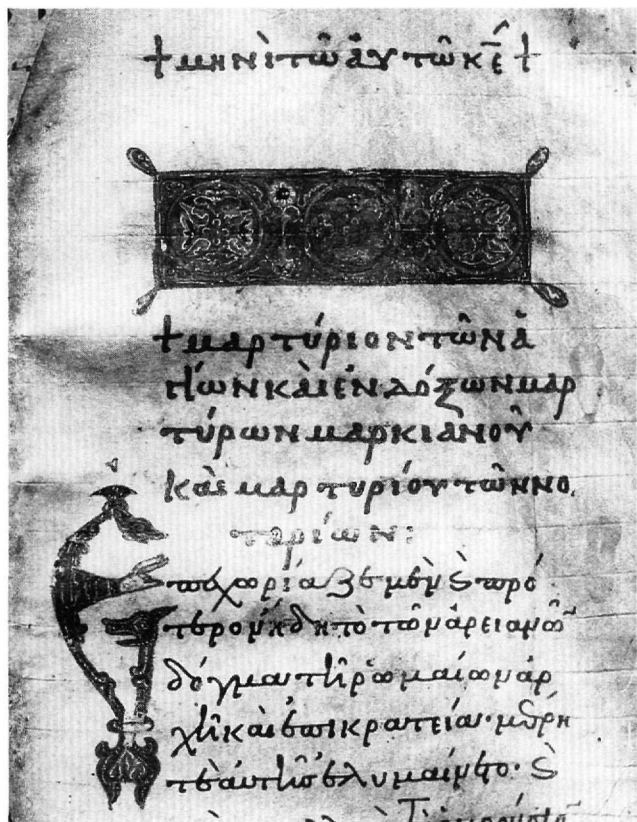 † μηνὶ τῶ ἀυτῶ κε †
† μαρτύριον τῶν ἁ
γίων καὶ ἐνδόξων μαρ
τύρων μαρκιανοῦ
καὶ μαρτυρίου τῶν νο
ταρίων:
Ἐπεχωρίαζε μὲν καὶ πρό
τερον ἤδη τὸ τῶν ἀρειανῶν
δόγμα τῆ ῥωμαίων ἀρ
χῆ καὶ ἐπικρατεία· μέρη
τε αὐτῆς ἐλυμαίνετο· καὶ